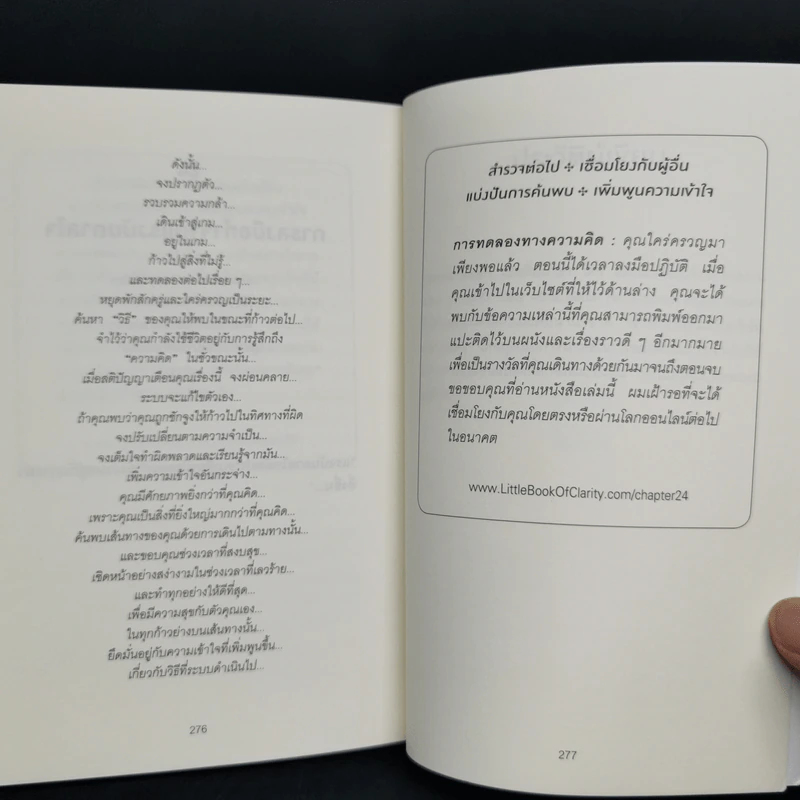 ดังนั้น...
จงปรากฏตัว...
รวบรวมความกล้า...
เดินเข้าสู่เกม...
อยู่ในเกม...
ก้าวไปสู่สิ่งที่ไม่รู้...
และทดลองต่อไปเรื่อย ๆ...
หยุดพักสักครู่และใคร่ครวญเป็นระยะ...
ค้นหา “วิธี” ของคุณให้พบในขณะที่ก้าวต่อไป...
จำไว้ว่าคุณกำลังใช้ชีวิตอยู่กับการรู้สึกถึง
“ความคิด” ในชั่วขณะนั้น...
เมื่อสติปัญญาเตือนคุณเรื่องนี้ จงผ่อนคลาย...
ระบบจะแก้ไขตัวเอง...
ถ้าคุณพบว่าคุณถูกชักจูงให้ก้าวไปในทิศทางที่ผิด
จงปรับเปลี่ยนตามความจำเป็น...
จงเต็มใจทำผิดพลาดและเรียนรู้จากมัน...
เพิ่มความเข้าใจอันกระจ่าง...
คุณมีศักยภาพยิ่งกว่าที่คุณคิด...
เพราะคุณเป็นสิ่งที่ยิ่งใหญ่มากกว่าที่คุณคิด...
ค้นพบเส้นทางของคุณด้วยการเดินไปตามทางนั้น...
และขอบคุณช่วงเวลาที่สงบสุข...
เชิดหน้าอย่างสง่างามในช่วงเวลาที่เลวร้าย...
และทำทุกอย่างให้ดีที่สุด...
เพื่อมีความสุขกับตัวคุณเอง...
ในทุกก้าวย่างบนเส้นทางนั้น...
ยึดมั่นอยู่กับความเข้าใจที่เพิ่มพูนขึ้น...
เกี่ยวกับวิธีที่ระบบดำเนินไป...
276
สำรวจต่อไป ✣ เชื่อมโยงกับผู้อื่น
แบ่งปันการค้นพบ ✣ เพิ่มพูนความเข้าใจ
การทดลองทางความคิด : คุณใคร่ครวญมา
เพียงพอแล้ว ตอนนี้ได้เวลาลงมือปฏิบัติ เมื่อ
คุณเข้าไปในเว็บไซต์ที่ให้ไว้ด้านล่าง คุณจะได้
พบกับข้อความเหล่านี้ที่คุณสามารถพิมพ์ออกมา
แปะติดไว้บนผนังและเรื่องราวดี ๆ อีกมากมาย
เพื่อเป็นรางวัลที่คุณเดินทางด้วยกันมาจนถึงตอนจบ
ขอขอบคุณที่อ่านหนังสือเล่มนี้ ผมเฝ้ารอที่จะได้
เชื่อมโยงกับคุณโดยตรงหรือผ่านโลกออนไลน์ต่อไป
ในอนาคต
www.LittleBookOfClarity.com/chapter24
277